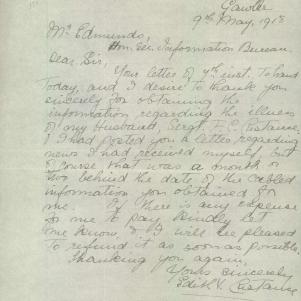 Gawler
9th May, 1918
Mr. Edmunds,
Hon. Sec. Information Bureau.
Dear Sir,
Your letter of 7th inst. to hand
today, and I desire to thank you
sincerely for obtaining the
information regarding the illness
of my Husband, Sergt. F. C. Castaine.
I had posted you a letter regarding
news I had received myself, but
of course that was a month or
two behind the date of the cabled
information you obtained for
me. If there is any expense
for me to pay, kindly let
me know, & I will be pleased
to refund it as soon as possible.
Thanking you again,
Yours sincerely
Edith V.